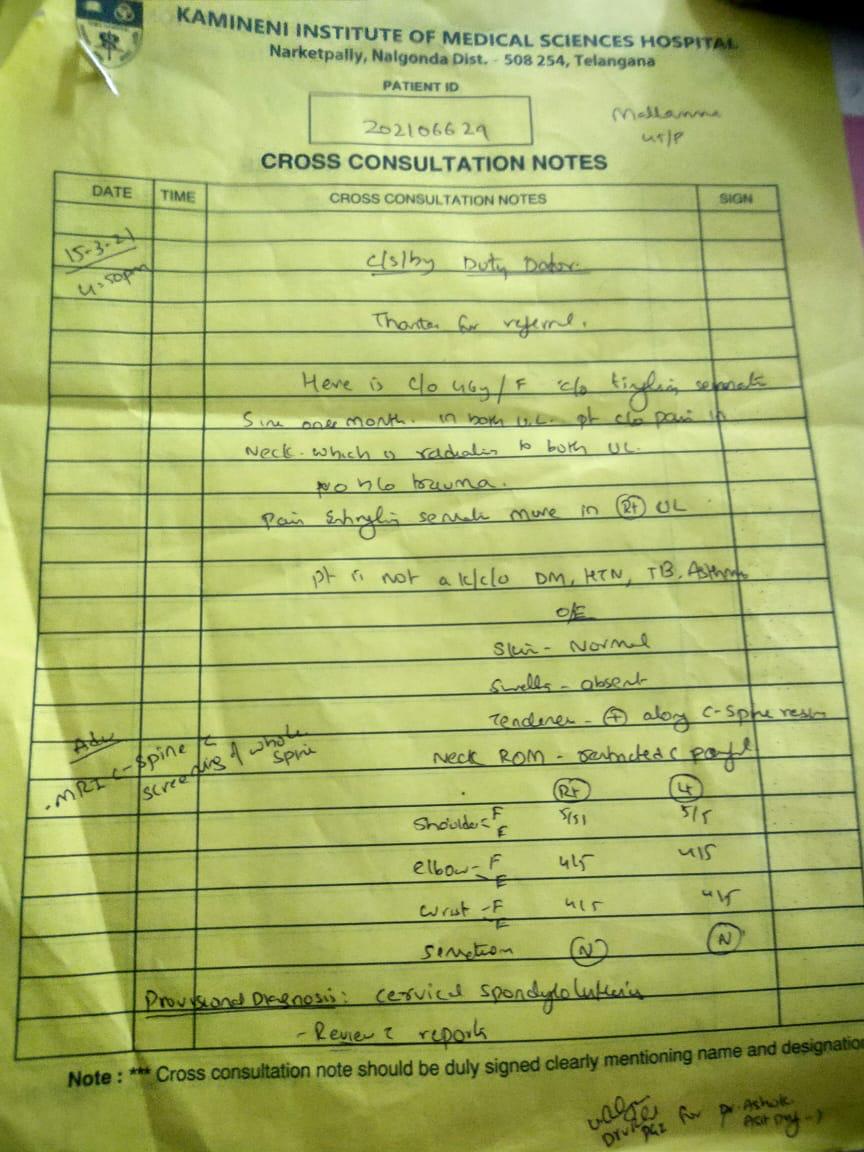 KAMINENI INSTITUTE OF MEDICAL SCIENCES HOSPITAL
Narketpally, Nalgonda Dist. - 508 254, Telangana
PATIENT ID
202106629
Mallamma
CROSS CONSULTATION NOTES
DATE TIME CROSS CONSULTATION NOTES SIGN
15-3-21
4:50pm
c/s/by Duty Doctor
Thanks for referral.
Here is c/o 46y/F c/o tingling sensation
Since one month. in both U.L. pt c/o pain in
Neck. which is radiating to both UL.
No h/o trauma.
Pain & tingling sensation more in Rt UL
pt is not a k/c/o DM, HTN, TB, Asthma
O/E
Skin - Normal
Swelling - absent
Tenderness - + along C-Spine region
Neck ROM - restricted & painful
Adv
. MRI C-Spine c
screening of whole
Spine
Rt Lt
Shoulder F 5/5 5/5
E
elbow - F 4/5 4/5
E
wrist - F 4/5 4/5
E
Sensation N N
Provisional Diagnosis: Cervical Spondylolisthesis
- Review c reports
Note : *** Cross consultation note should be duly signed clearly mentioning name and designation
PG2 for Dr. Ashok